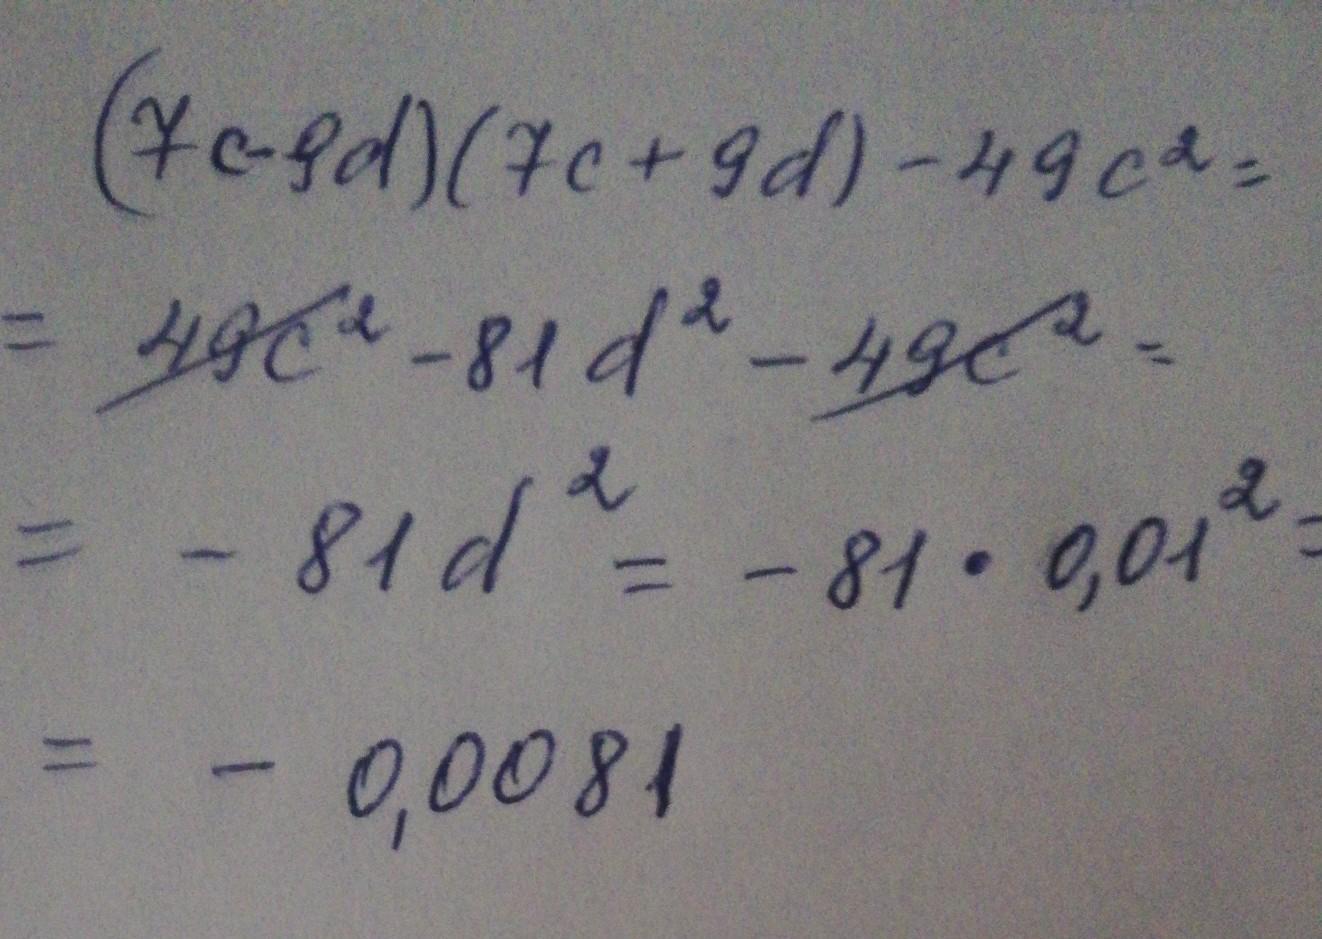 (7c-9d)(7c+9d)-49c²=
= 49c²-81d²-49c²=
= -81d²=-81·0,01²=
= -0,0081